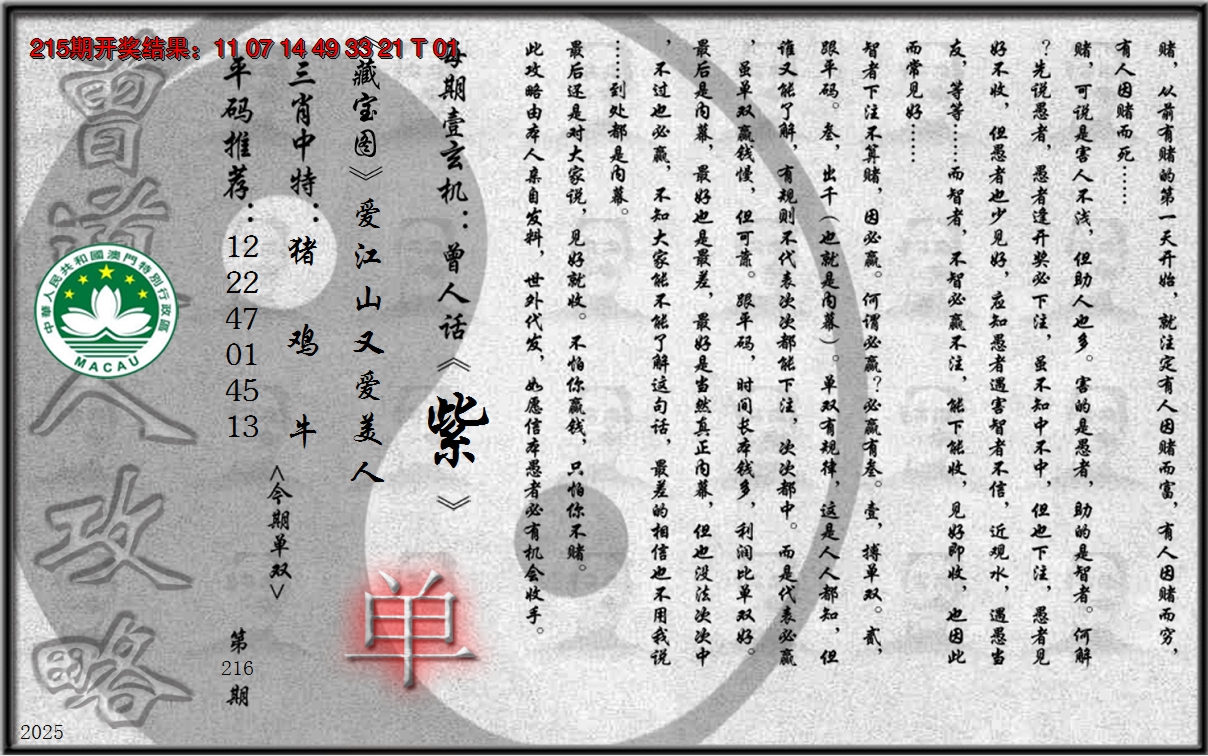 215期开奖结果：11 07 14 49 33 21 T 01
赌，从前有赌的第一天开始，就注定有人因赌而富，有人因赌而穷，
有人因赌而死……
赌，可说是害人不浅，但助人也多。害的是愚者，助的是智者。何解
？先说愚者，愚者逢开奖必下注，虽不知中不中，但也下注，愚者见
好不收，但愚者也少见好，应知愚者遇害智者不信，近观水，遇愚当
友，等等……而智者，不智必赢不注，能下能收，见好即收，也因此
而常见好……
智者下注不算赌，因必赢。何谓必赢？必赢有叁。壹，搏单双。贰，
跟平码。叁，出千（也就是内幕）。单双有规律，这是人人都知，但
谁又能了解，有规则不代表次次都能下注，次次都中。而是代表必赢
，虽单双赢钱慢，但可靠。跟平码，时间长本钱多，利润比单双好。
最后是内幕，最好也是最差，最好是当然真正内幕，但也没法次次中
，不过也必赢，不知大家能不能了解这句话，最差的相信也不用我说
……到处都是内幕。
最后还是对大家说，见好就收。不怕你赢钱，只怕你不赌。
此攻略由本人亲自发料，世外代发，如愿信本愚者必有机会收手。
每期壹玄机：曾人话《紫》
《藏宝图》爱江山又爱美人
单
三肖中特：猪 鸡 牛
<今期单双>
平码推荐：12 22 47 01 45 13
第216期
曾道人攻略
中華人民共和國澳門特別行政區
MACAU
2025